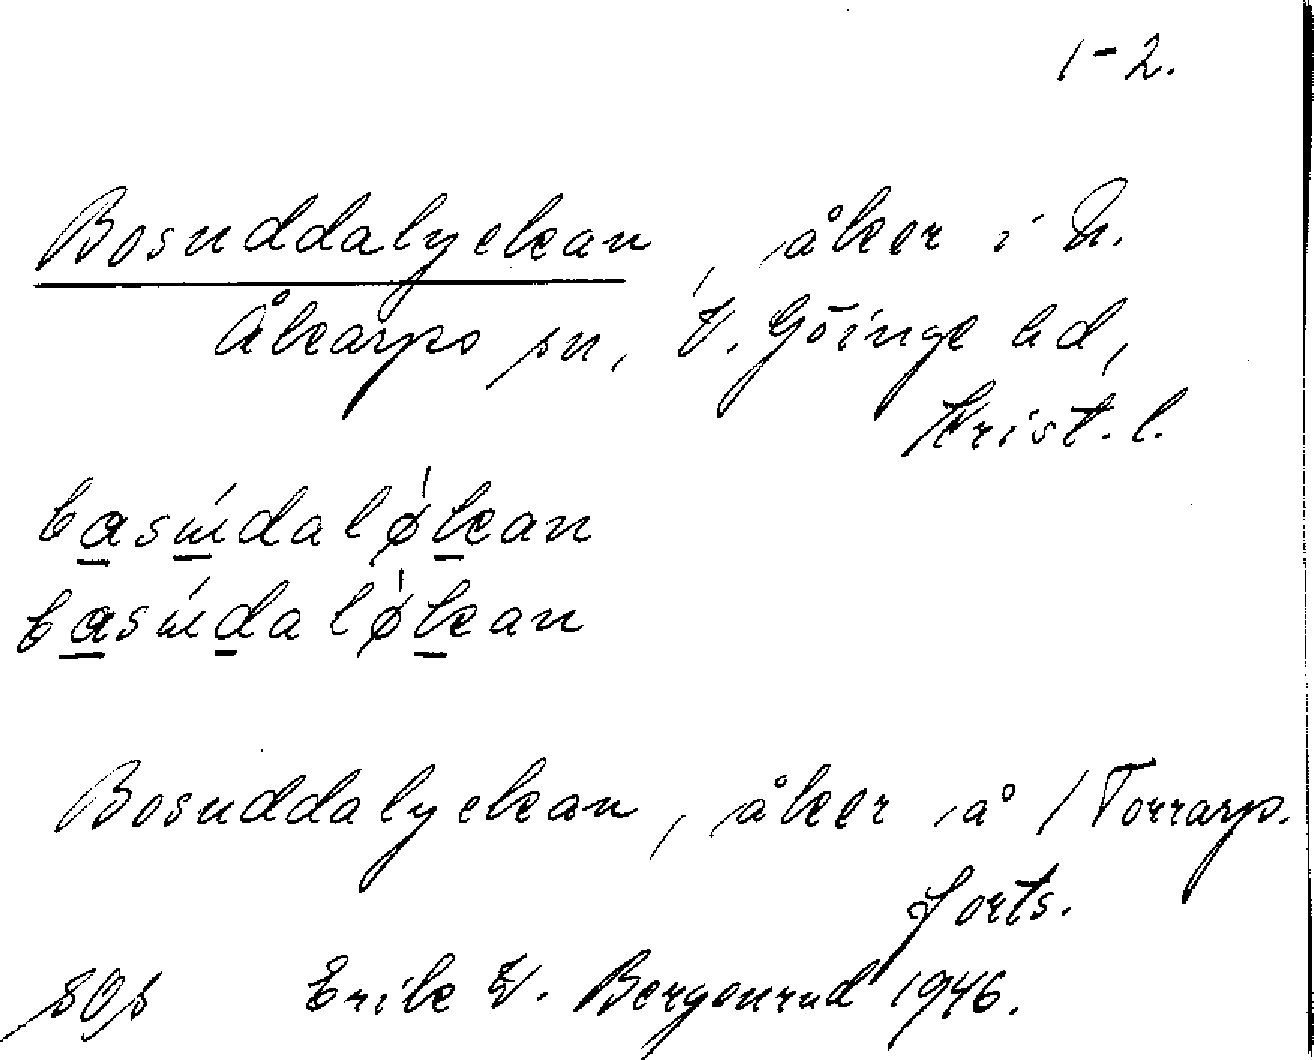 1-2.
Bosuddalyckan, åker i N.
Åkarps sn, V. Göinge hd,
Krist. l.
basúdalǿkan
basúdalǿkan
Bosuddalyckan, åker å / Torrarp.
forts.
Erik V. Bergonrud 1946.